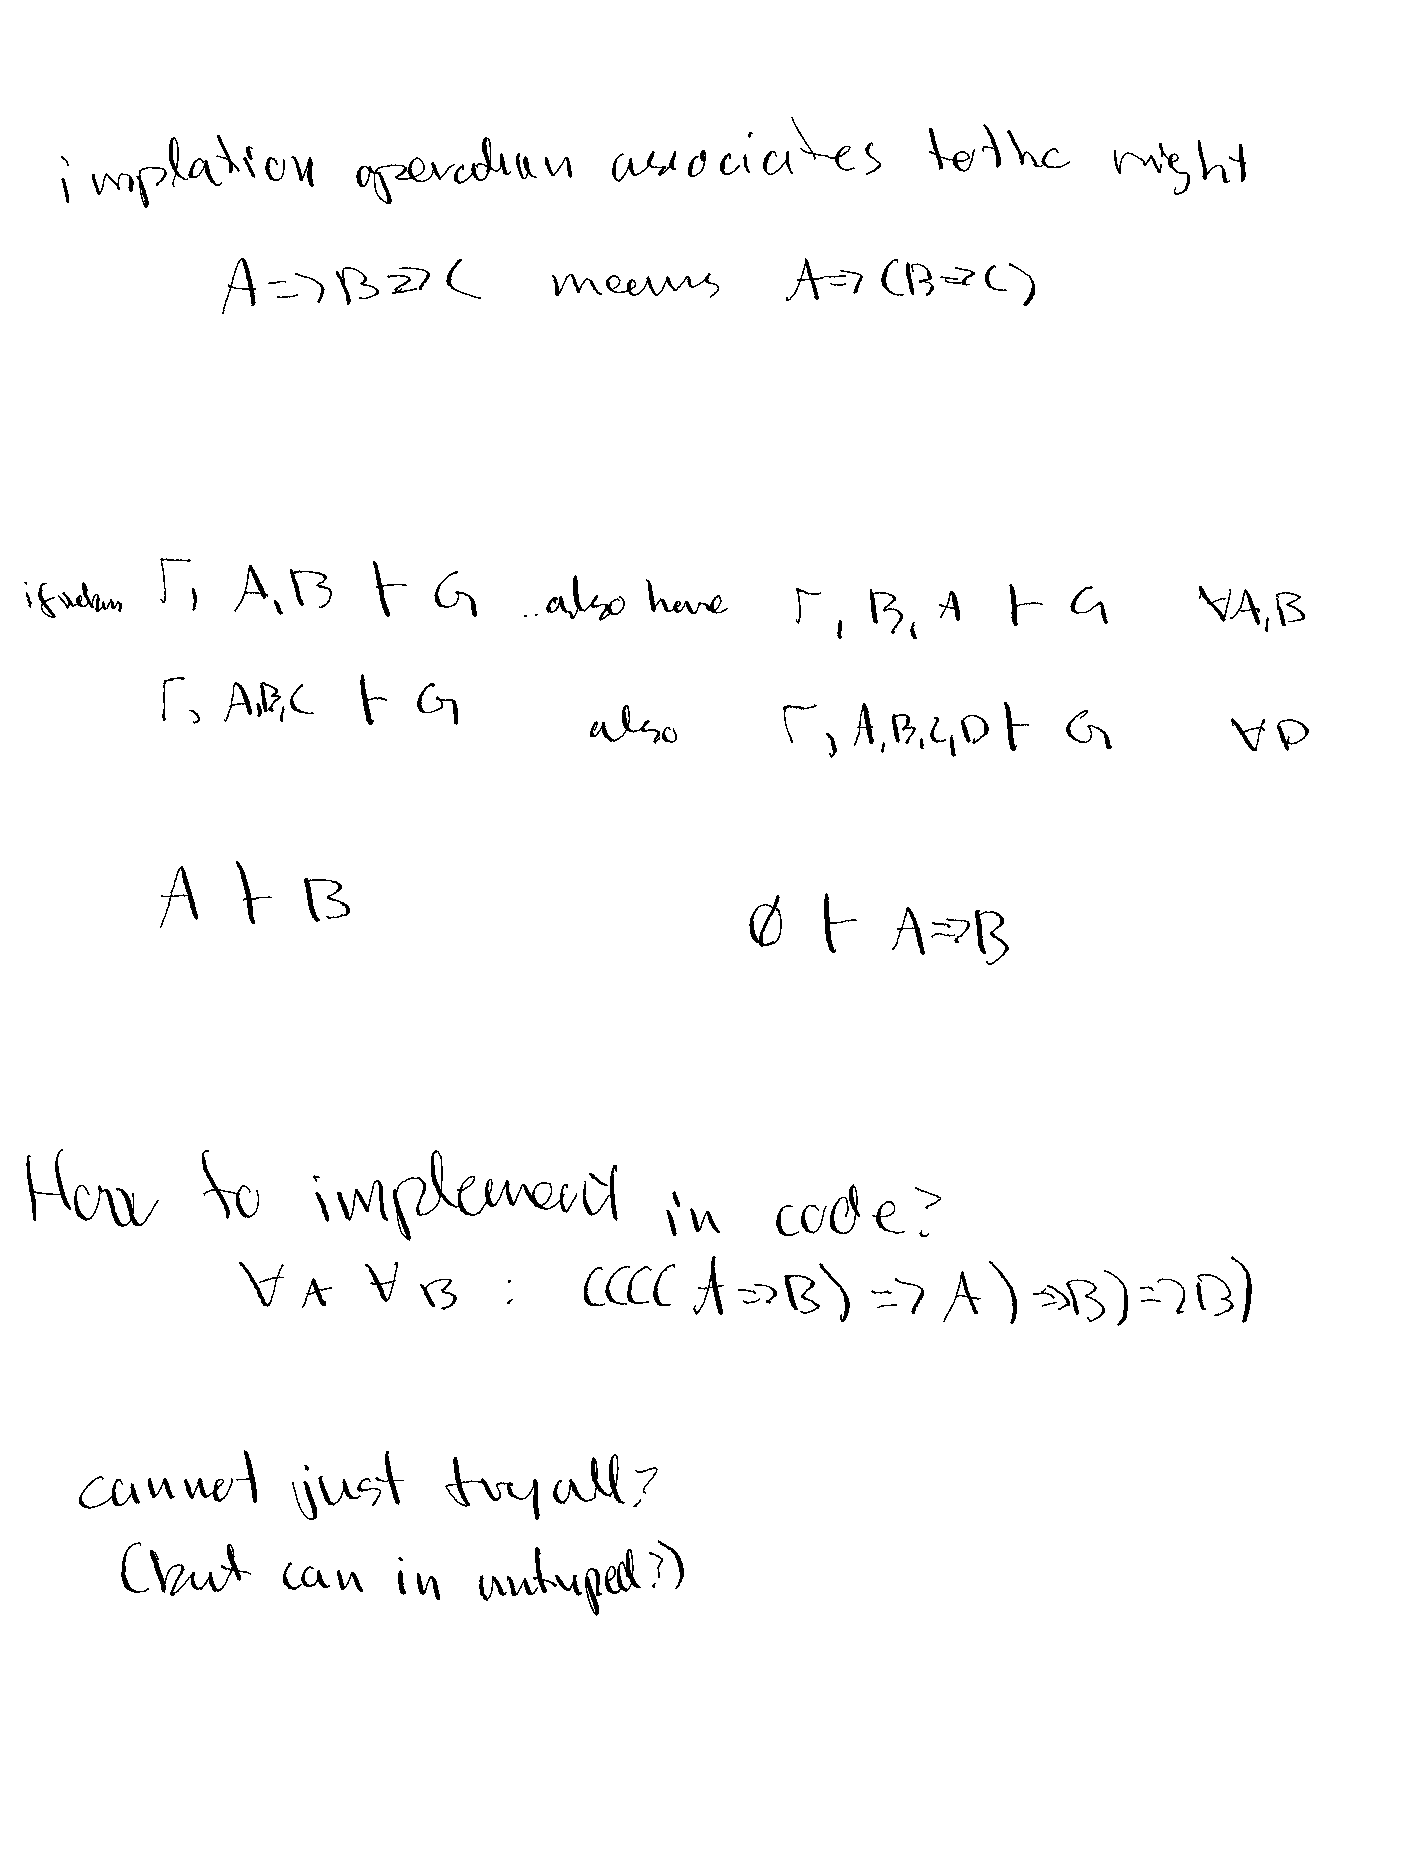 implation operation associates to the right
A => B => C means A => (B => C)
Γ, A, B ⊢ G also have Γ, B, A ⊢ G ∀A,B
Γ, A,B,C ⊢ G also Γ, A,B,C,D ⊢ G ∀D
A ⊢ B ∅ ⊢ A => B
How to implement in code?
∀A ∀B : ((((A => B) => A) => B) => B)
cannot just try all?
(but can in untyped?)